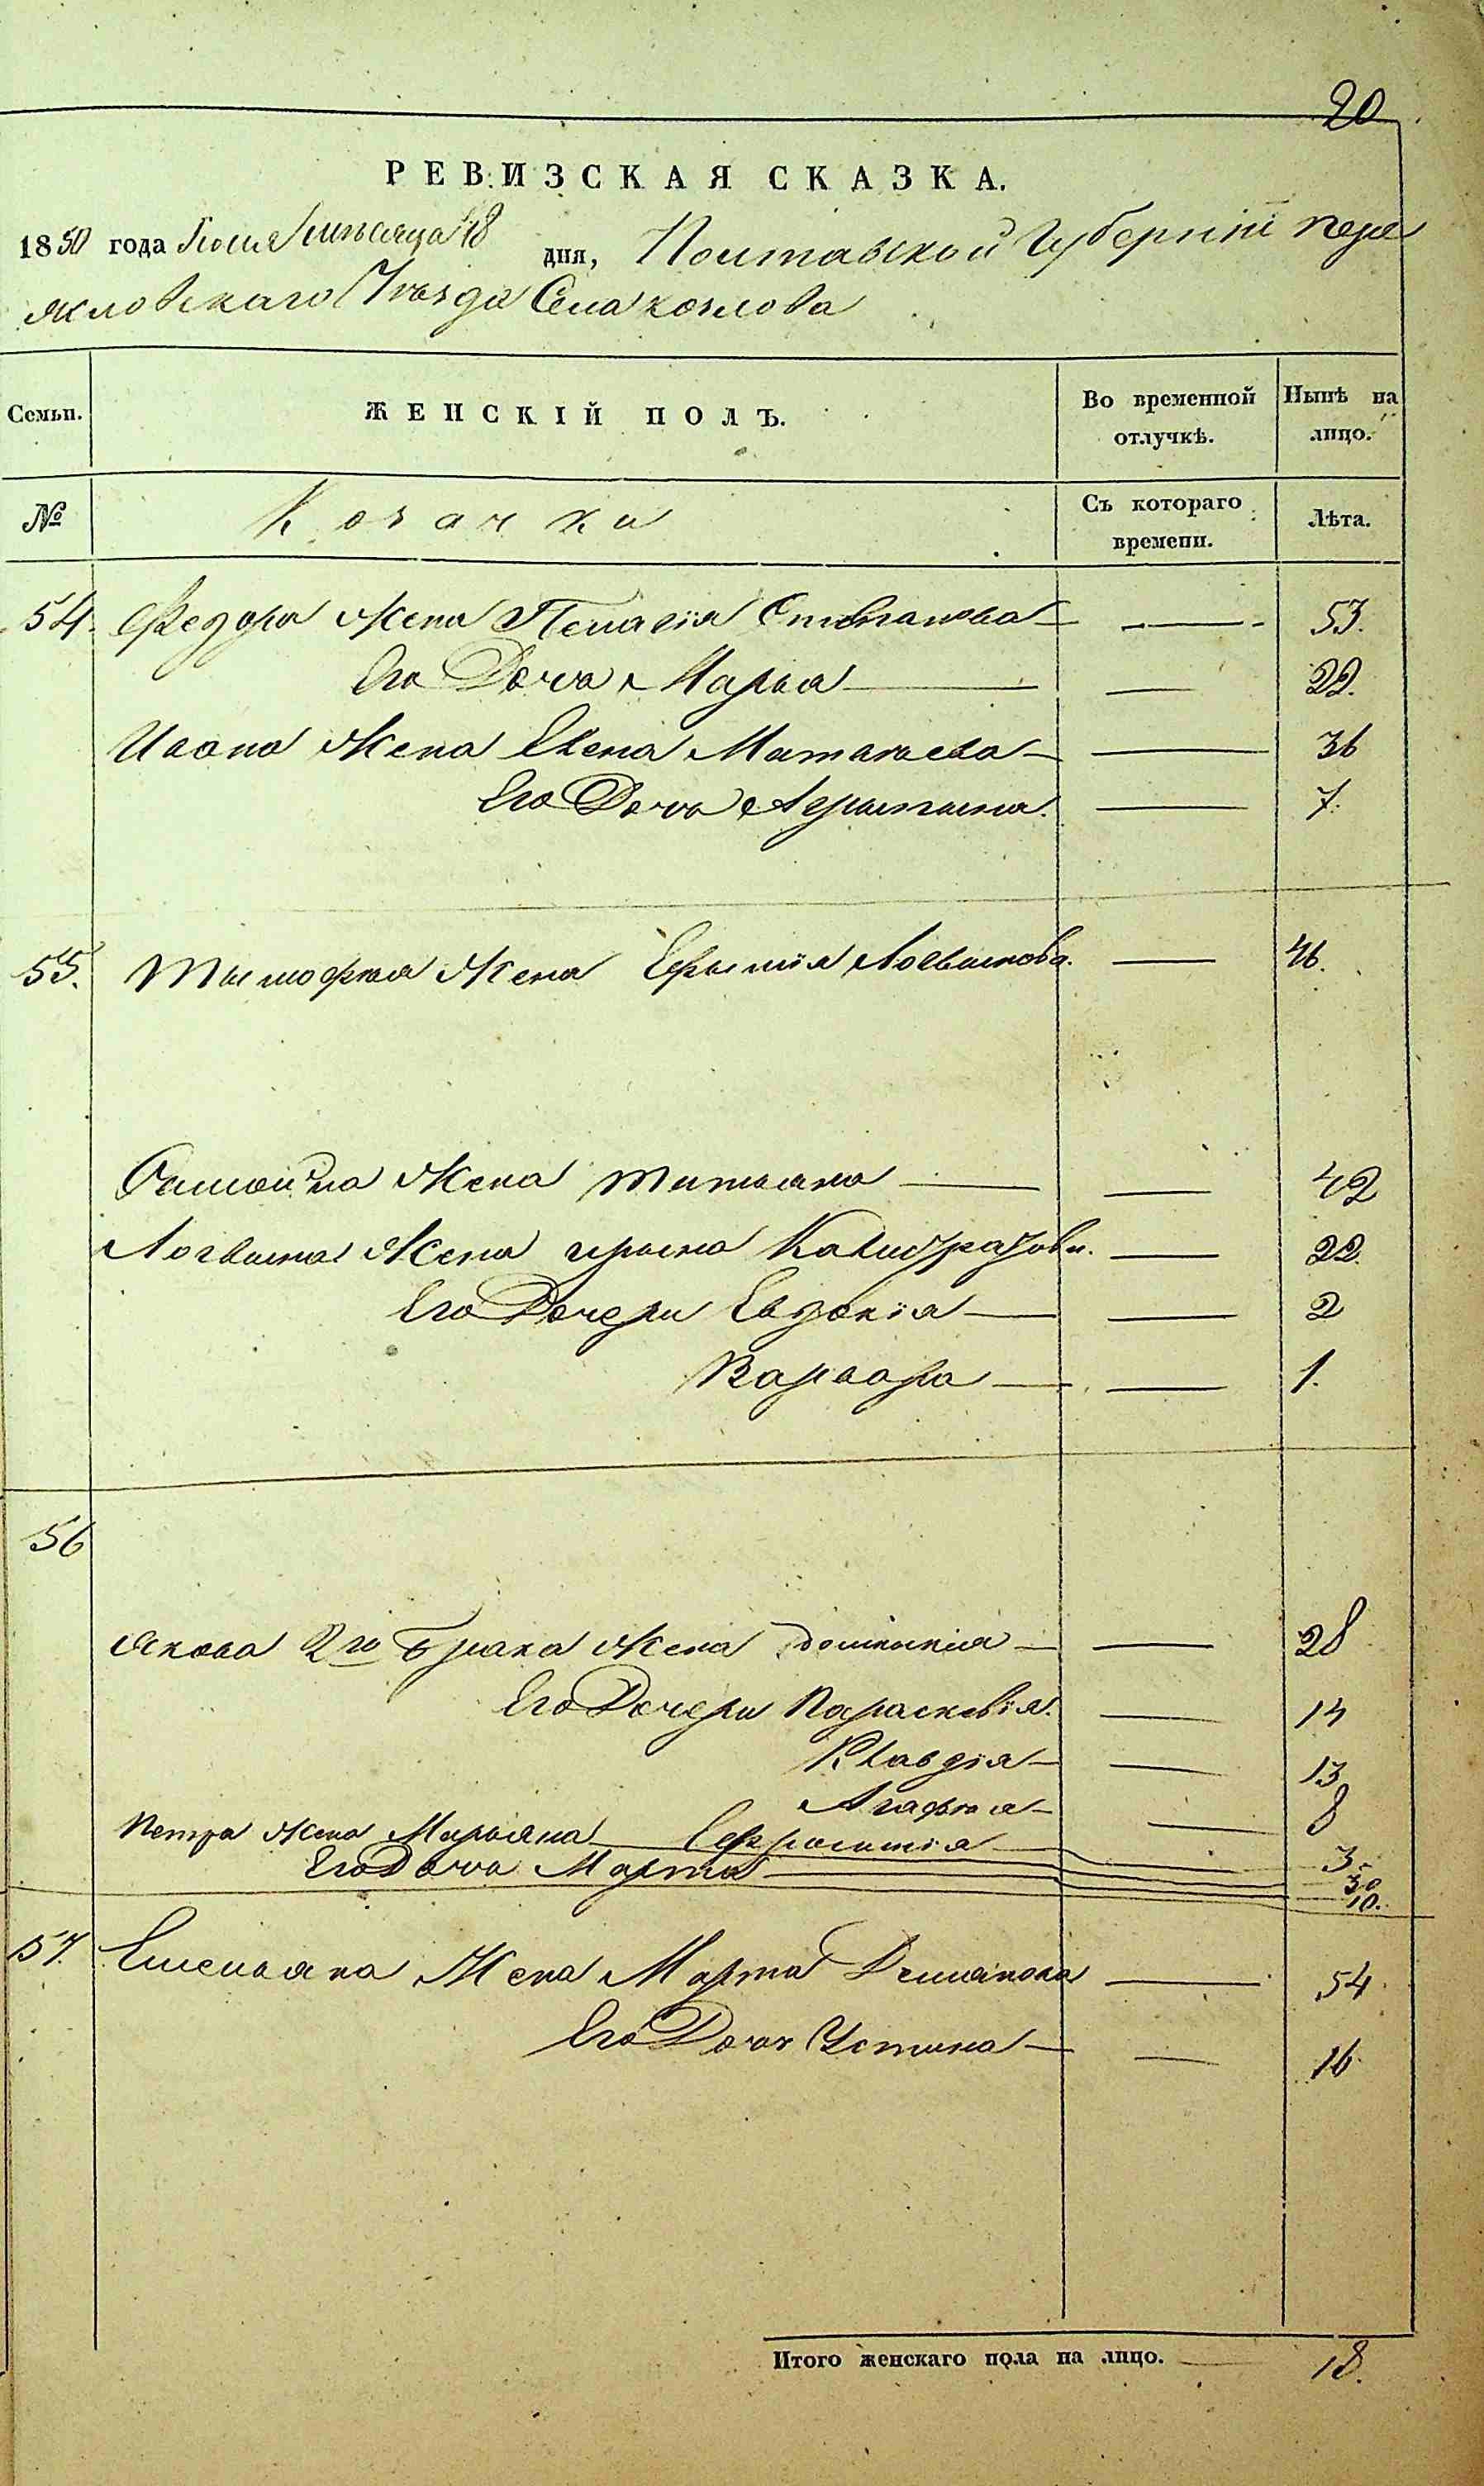 20
РЕВИЗСКАЯ СКАЗКА.
1850 года Июня месяца 18 дня, Полтавской Губерніи Пере
яславскаго Уѣзда Села Козлова
Семьи. ЖЕНСКІЙ ПОЛЪ. Во временной отлучкѣ. Нынѣ на лицо.
№ Козачки Съ котораго времени. Лѣта.
54. Федора Жена Пелагія Степанова — — 53.
Его Дочь Марья — — 22.
Ивана Жена Елена Матвѣева — — 36
Его Дочь — 7.
55. Тымофея Жена Логвынова. — 46.
Самойла Жена Татьяна — — 42
Логвына Жена Ирына — 22.
Его Дочери Евдокія — — 2
Варвара — — 1.
56
Якова 2го Брака Жена Домникія — — 28
Его Дочери Параскевія. — 14
Клавдія — — 13
Агафія — — 8
Петра Жена Марьяна — Ефросинія — — 3.
Его Дочь Марта — 30
10.
57. Емельяна Жена Марта Демянова — 54
Его Дочь Устина — — 16.
Итого женскаго пола на лицо. — 18.